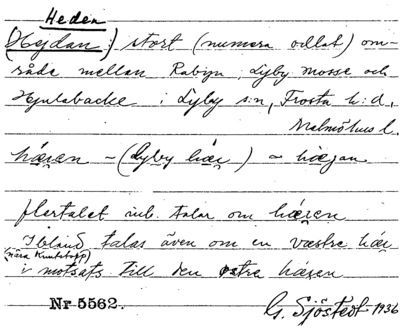 Heden
(Hejdan:) stort (numera odlat) om-
råde mellan Rabyn, Lyby mosse och
Hjulabacke i Lyby s:n, Frosta h:d,
Malmöhus l.
hæren – (Lyby hær) ~ hæjan
flertalet inb. talar om hæren
Ibland talas även om en væstre hær
(nära Kuntstopp)
i motsats till den östre hæren
Nr 5562.
G. Sjöstedt 1936